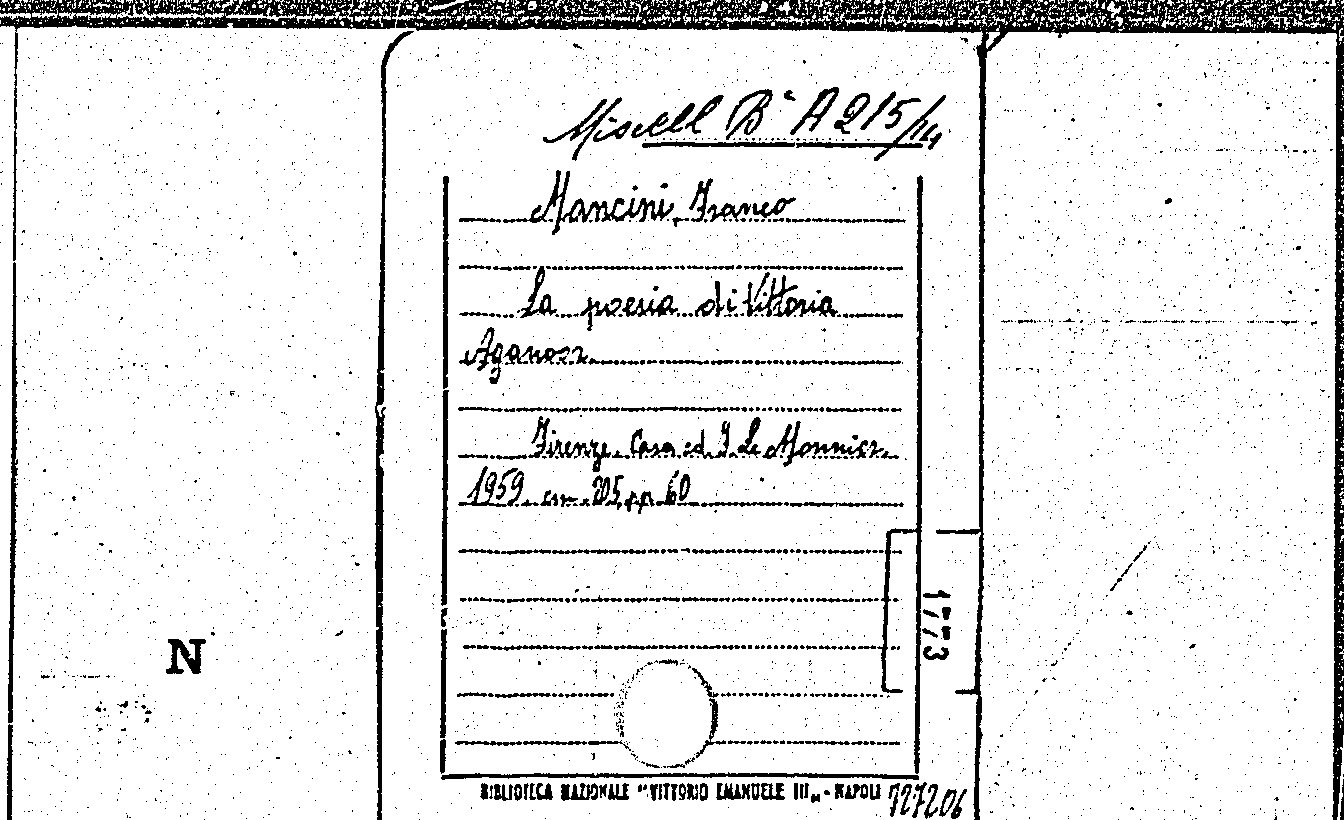 Miscell Bª A 215/14
Mancini, Franco
La poesia di Vittoria
Aganoor.
Firenze. Casa ed. F. Le Monnier.
1959. cm. 205, pp. 60
1773
N
BIBLIOTECA NAZIONALE "VITTORIO EMANUELE III„ - NAPOLI 727206